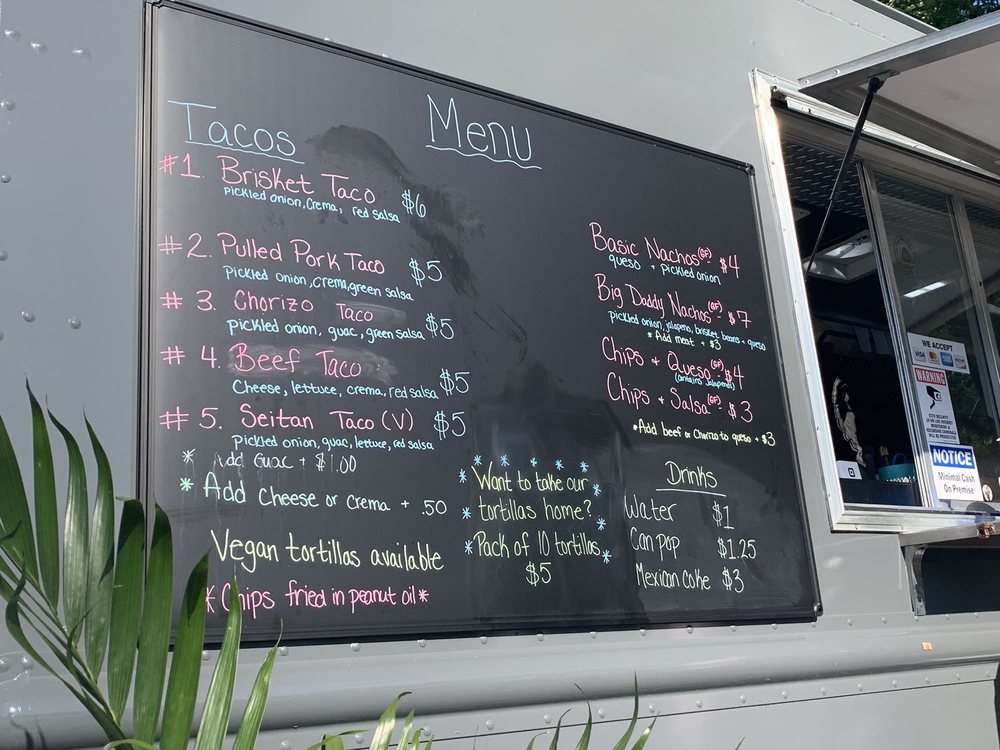 Menu
Tacos
#1. Brisket Taco $6
pickled onion, Crema, red salsa
#2. Pulled Pork Taco $5
pickled onion, crema, green salsa
#3. Chorizo Taco $5
pickled onion, guac, green salsa
#4. Beef Taco $5
Cheese, lettuce, crema, red salsa
#5. Seitan Taco (V) $5
Pickled onion, guac, lettuce, red salsa
* Add Guac + $1.00
* Add Cheese or Crema + .50
Vegan tortillas available
* Chips fried in peanut oil *
Want to take our
tortillas home?
Pack of 10 tortillas
$5
Basic Nachos (GF) $4
queso + pickled onion
Big Daddy Nachos (GF) - $7
pickled onion, jalapeno, brisket, beans + queso
* Add meat + $3
Chips + Queso (GF) - $4
(contains Jalapenos)
Chips + Salsa (GF) - $3
*Add beef or Chorizo to queso + $3
Drinks
Water $1
Can pop $1.25
Mexican coke $3
WE ACCEPT
VISA
WARNING
NOTICE
Minimal Cash
On Premise